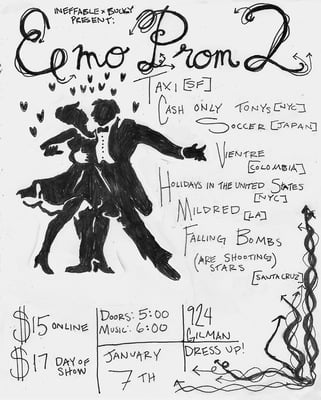 INEFFABLE x BUCKY
PRESENT:
Eemo Prom 2
TAXI [SF]
CASH ONLY TONYS [NYC]
SOCCER [JAPAN]
VIENTRE
[COLOMBIA]
HOLIDAYS IN THE UNITED STATES
[NYC]
MILDRED [LA]
FALLING BOMBS
(ARE SHOOTING
STARS)
[SANTA CRUZ]
$15 ONLINE
$17 DAY OF
SHOW
DOORS: 5:00
MUSIC: 6:00
JANUARY
7TH
924
GILMAN
DRESS UP!